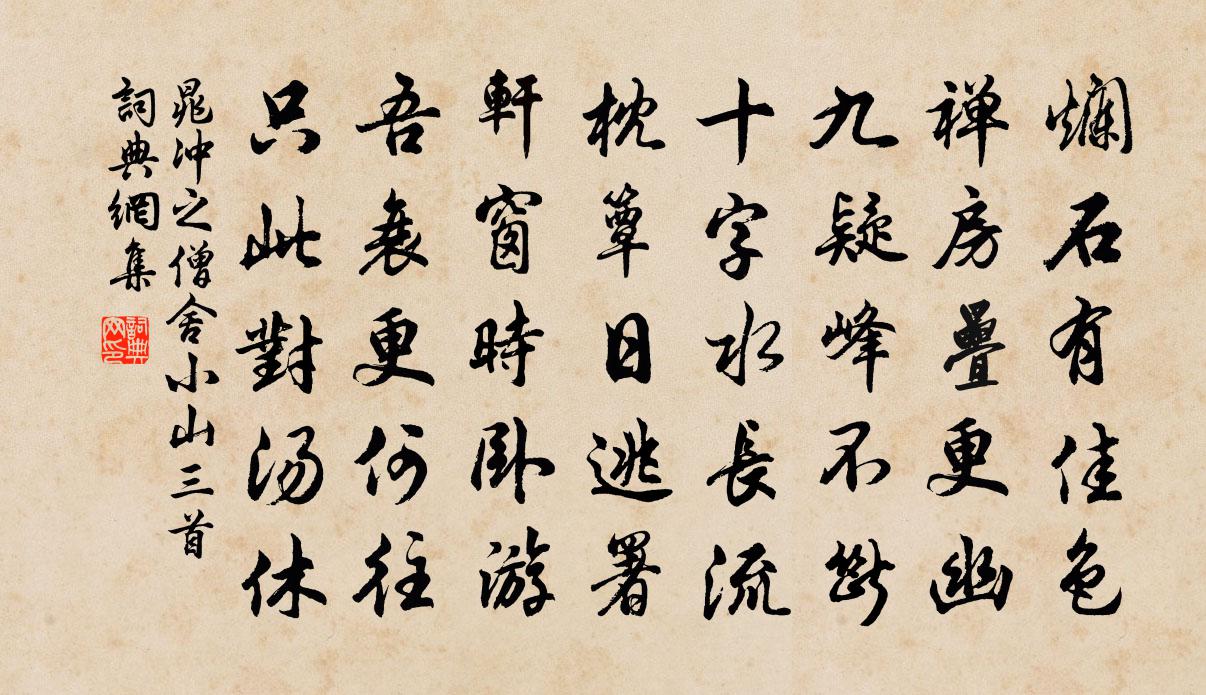 爛石有佳色
禅房疊更幽
九疑峰不斷
十字水長流
枕簟日逃署
軒窗時卧游
吾衰更何往
只此對湯休
晁沖之僧舍小山三首
詞典網集
詞典网印